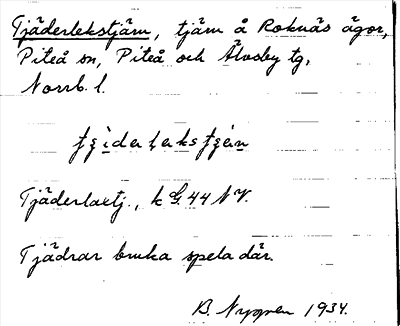 Tjäderlekstjärn, tjärn å Roknäs ägor,
Piteå sn, Piteå och Älvsby tg,
Norrb. l.
Tjäderlaetj., k G. 44 NV.
Tjädrar bruka spela där.
B. Nygren 1934.